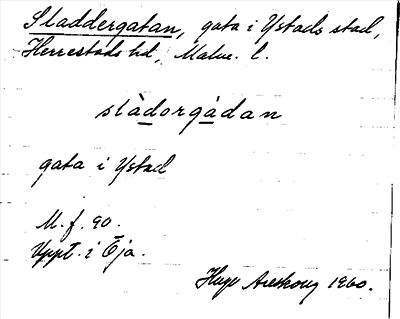 Sladdergatan, gata i Ystads stad,
Herrestads hd, Malm. l.
slàdorgàdan
gata i Ystad
M. f. 90.
Uppt. i Öja.
Hugo Areskoug 1960.